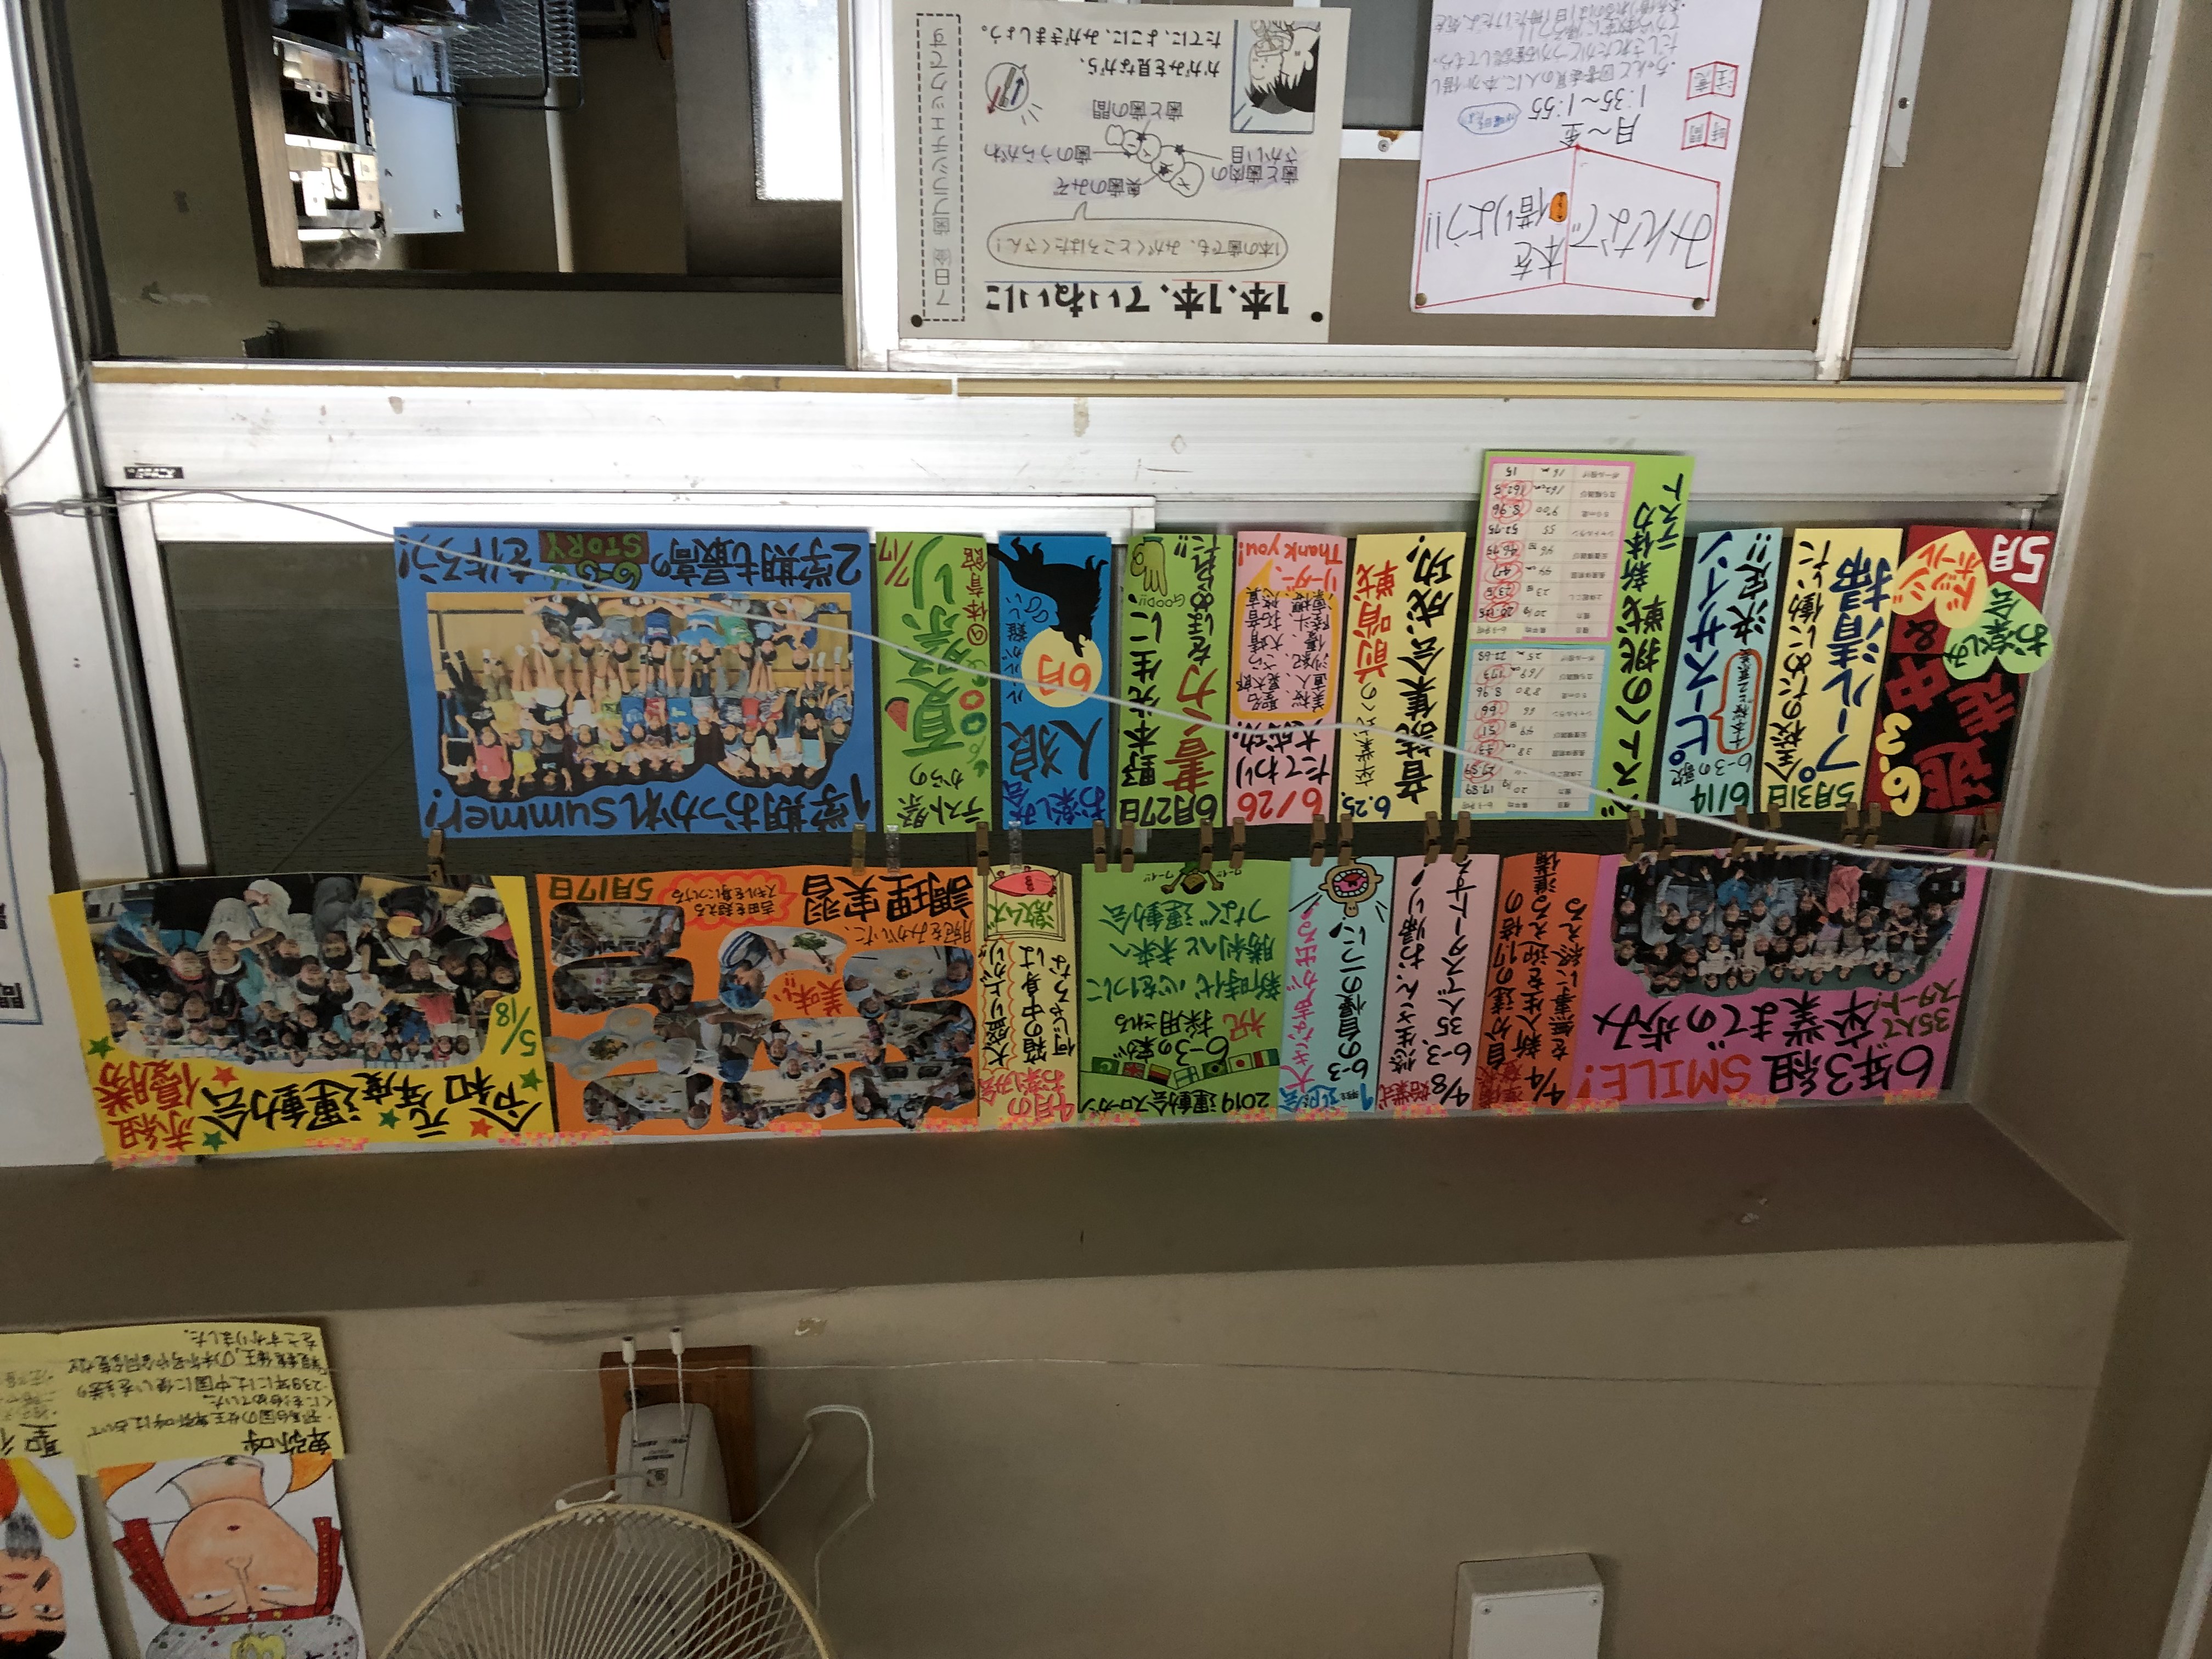 卑弥呼
・邪馬台国の女王卑弥呼は占いで
くにを治めていた。
・239年には中国に使いを送り
「親魏倭王」の称号や銅鏡など
をさずかりました。
聖
6年3組 SMILE!
35人で
スタート!
卒業までの歩み
4/4 準備登校
自分達の1.7倍の
新入生を迎える準備
を無事に終える
4/8 始業式
悠生さん、お帰り!
6-3、35人でスタートする
1年生迎える会
大きな声が出る!
6-3の自慢の一つに!
2019 運動会スローガン
6-3の案が
祝 採用される
新時代 心を1つに
勝利へと 未来へ
つなぐ 運動会
ワーイ!! ワーイ!!
4月の
お楽しみ会
大盛り上がり!!
箱の中身は
何じゃろな
激ムズ
美味い!!
腕をみがいた、
調理実習
吉田を超える
スキルを身につける
5月17日
令和元年度運動会
赤組
優勝
5/18
6.3
逃走中
&
お楽しみ会
ドッジボール
5月
5月31日
全校のために働いた
プール清掃
6/14
6-3の歌
ピースサイン
決定!!
ベストへの挑戦 新体力
テスト
種目 県平均 6-3平均
握力 20kg 17.89
上体起こし
長座体前屈 38cm 43
反復横跳び 49回 51
シャトルラン 66 66
50m走 8"80 8.96
立ち幅跳び 169cm 173
ボール投げ 25m 22.68
種目 県平均 6-3平均
握力 20kg
上体起こし 23回 23.5
長座体前屈 44cm 47
反復横跳び 46回 46.75
シャトルラン 55 52.75
50m走 9"00 8.96
立ち幅跳び 162cm 162.5
ボール投げ 16m 15
6.25.
卒業式への前哨戦
音読集会、成功!
6/26
たてわり
大成功!
リーダー、
Thank you!
6月27日
野本先生に、
書く力をほめられた!!
GOOD!!
お楽しみ会
人狼
6月
ルールが難しい
テスト祭
からの
夏祭り
@体育館
7/17
1学期おつかれsummer!
2学期も最高の 6-3 STORY を作ろう!
みんなで本を
借りよう!!
時間
月～金
1:35～1:55
注意
・ちゃんと図書委員の人に、本が借し
だしされたかどうか確認してもらっ
てから教室に帰ろう!!
・本を借りれるのは1日1冊だけだよ。気を
1本、1本、ていねいに
1本の歯でも、みがくところはたくさん!
歯と歯肉の
さかい目
奥歯のみぞ
歯のうらがわ
歯と歯の間
かがみを見ながら、
たてに、よこに、みがきましょう。
7日(金) 歯ブラシチェックです
問